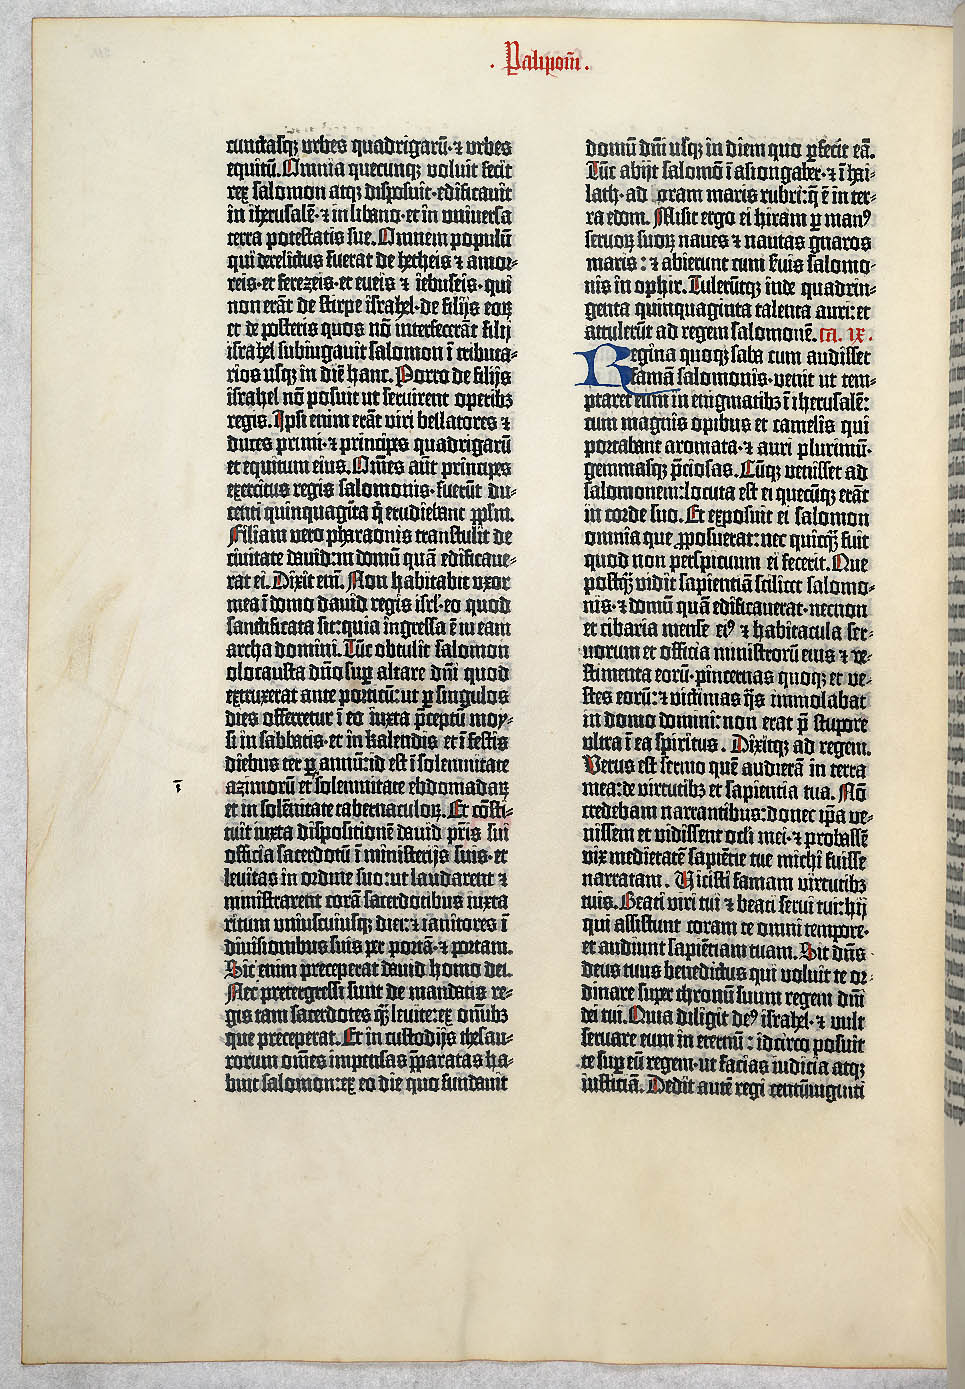 · Palipom̄ ·
cunctasqꝫ urbes quadrigarū·⁊ urbes
equitū. Omnia quecunqꝫ voluit fecit
rex salomon atqꝫ disposuit·edificauit
in iherusalē·⁊ in libano·et in vniuersa
terra potestatis sue. Omnem populū
qui derelictus fuerat de hetheis ⁊ amor-
reis·et ferezeis·et eueis ⁊ iebuseis·qui
non erāt de stirpe israhel·de filijs eoꝝ
et de posteris quos nō interfecerāt filij
israhel subiugauit salomon ī tributa-
rios usqꝫ in diē hanc. Porro de filijs
israhel nō posuit ut seruirent operibꝫ
regis. Ipsi enim erāt viri bellatores ⁊
duces primi·⁊ principes quadrigarū
et equitum eius. Om̄es aūt principes
exercitus regis salomonis·fuerūt du-
centi quinquagīta q̄ erudiebant pp̄lm.
Filiam vero pharaonis transtulit de
ciuitate dauid:in domū quā edificaue-
rat ei. Dixit em̄. Non habitabit uxor
mea ī domo dauid regis isrl·eo quod
sanctificata sit:quia ingressa ē in eam
archa domini. Tūc obtulit salomon
olocausta dn̄o sup̄ altare dn̄i quod
extruxerat ante porticū:ut p̄ singulos
dies offerretur ī eo iuxta p̄ceptū moy-
si in sabbatis·et in kalendis et ī festis
diebus ter p̄ annū:id est ī solemnitate
azimorū et solemnitate ebdomadaꝝ
ī
et in solēnitate tabernaculoꝝ. Et cōsti-
tuit iuxta dispositionē dauid pr̄is sui
officia sacerdotū ī ministerijs suis·et
leuitas in ordine suo:ut laudarent ⁊
ministrarent corā sacerdotibus iuxta
ritum uniuscuiusqꝫ diei:⁊ ianitores ī
diuisionibus suis per portā·⁊ portam.
Sic enim preceperat dauid homo dei.
Nec pretergressi sunt de mandatis re-
gis tam sacerdotes q̄ꝫ leuite:ex om̄ibꝫ
que preceperat. Et in custodijs thesau-
rorum om̄es impensas p̄paratas ha-
buit salomon:ex eo die quo fundauit
domū dn̄i usqꝫ in diem quo p̄fecit eā.
Tūc abijt salomō ī asiongaber·⁊ ī hai-
lath·ad oram maris rubri:q̄ ē in ter-
ra edom. Misit ergo ei hiram p̄ manꝰ
seruoꝝ suoꝝ naues ⁊ nautas gnaros
maris:⁊ abierunt cum s̄uis salomo-
nis in ophir. Tulerūtqꝫ inde quadrin-
genta quinquaginta talenta auri:et
attulerūt ad regem salomonē. ca. ix.
Regina quoqꝫ saba cum audisset
famā salomonis·venit ut tem-
ptaret eum in enigmatibꝫ ī iherusalē:
cum magnis opibus et camelis qui
portabant aromata·⁊ auri plurimū·
gemmasqꝫ p̄ciosas. Cūqꝫ venisset ad
salomonem:locuta est ei quecūqꝫ erāt
in corde suo. Et exposuit ei salomon
omnia que p̄posuerat:nec quicq̄ꝫ fuit
quod non perspicuum ei fecerit. Que
postq̄ꝫ vidit sapientiā scilicet salomo-
nis·⁊ domū quā edificauerat·necnon
et cibaria mense eiꝰ ⁊ habitacula ser-
uorum et officia ministrorū eius ⁊ ve-
stimenta eorū·pincernas quoqꝫ et ve-
stes eorū:⁊ victimas q̄s immolabat
in domo domini:non erat p̄ stupore
ultra ī ea spiritus. Dixitqꝫ ad regem.
Verus est sermo quē audierā in terra
mea:de virtutibꝫ et sapientia tua. Nō
credebam narrantibus:donec ip̄a ve-
nissem et vidissent oc̄li mei·⁊ probassē
vix medietatē sapiētie tue michi fuisse
narratam. Uicisti famam virtutibꝫ
tuis. Beati viri tui ⁊ beati serui tui:hij
qui assistunt coram te omni tempore·
et audiunt sapiētiam tuam. Sit dn̄s
deus tuus benedictus qui voluit te or-
dinare super thronū suum regem dn̄i
dei tui. Quia diligit deꝰ israhel·⁊ vult
seruare eum in eternū: idcirco posuit
te sup̄ eū regem·ut facias iudicia atqꝫ
iusticiā. Dedit autē regi centūuiginti